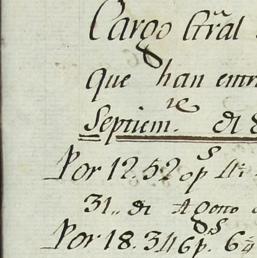 Cargo Grãl
que han entr
Septiem.re de
Por 12.52 op.s
31,, de Agosto
Por 18.346 p.s 6